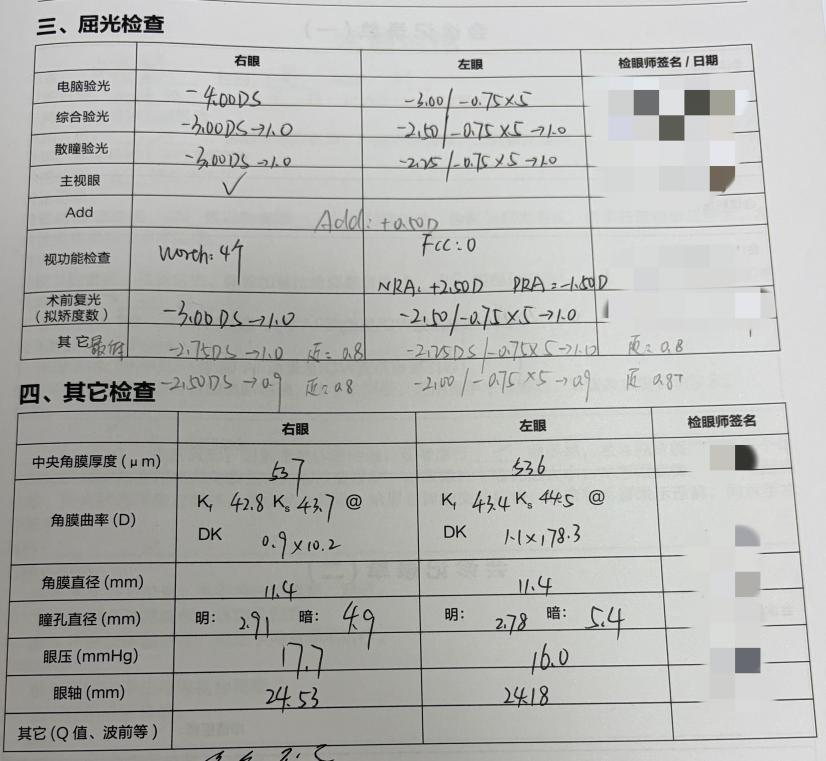 三、屈光检查
右眼 左眼 检眼师签名/日期
电脑验光 -4.00DS -3.00/-0.75×5
综合验光 -3.00DS→1.0 -2.50/-0.75×5→1.0
散瞳验光 -3.00DS→1.0 -2.25/-0.75×5→1.0
主视眼 √
Add Add:+0.50D
视功能检查 Worth:4个 Fcc:0
NRA:+2.50D PRA=-1.50D
术前复光
(拟矫度数) -3.00DS→1.0 -2.50/-0.75×5→1.0
其它 -2.75DS→1.0 近=0.8 -2.25DS/-0.75×5→1.0 近=0.8
-2.50DS→0.9 近=0.8 -2.00/-0.75×5→0.9 近0.8+
四、其它检查
右眼 左眼 检眼师签名
中央角膜厚度(μm) 537 536
角膜曲率(D) Kf 42.8 Ks 43.7 @ Kf 43.4 Ks 44.5 @
DK 0.9×10.2 DK 1.1×178.3
角膜直径(mm) 11.4 11.4
瞳孔直径(mm) 明: 2.91 暗: 4.9 明: 2.78 暗: 5.4
眼压(mmHg) 17.7 16.0
眼轴(mm) 24.53 24.18
其它(Q值、波前等)